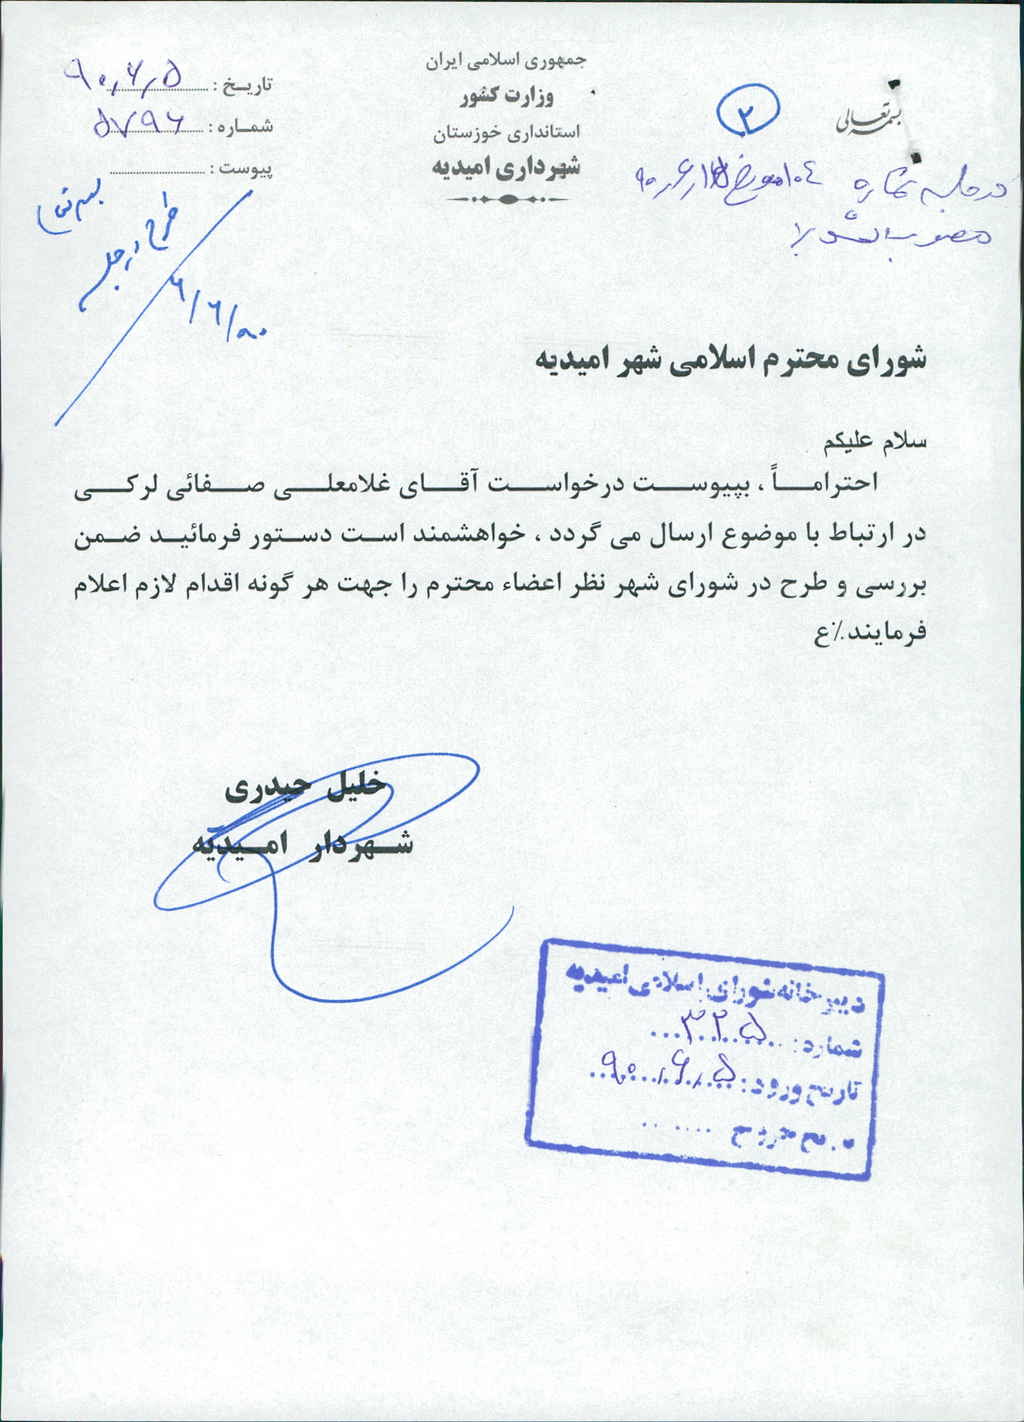 بسمه تعالی
جمهوری اسلامی ایران
وزارت کشور
استانداری خوزستان
شهرداری امیدیه
تاریخ : ۹۰٫۶٫۵
شماره : ۵۷۹۶
پیوست :
۲
در جلسه شماره ۱۰۴ مورخ ۹۰٫۶٫۱۵
مصوب شد
طرح در جلسه
۹۰/۶/۶
شورای محترم اسلامی شهر امیدیه
سلام علیکم
احتراماً ، بپیوست درخواست آقای غلامعلی صفائی لرکی
در ارتباط با موضوع ارسال می گردد ، خواهشمند است دستور فرمائید ضمن
بررسی و طرح در شورای شهر نظر اعضاء محترم را جهت هر گونه اقدام لازم اعلام
فرمایند.٪ع
خلیل حیدری
شهردار امیدیه
دبیرخانه شورای اسلامی امیدیه
شماره: ۳۲۵
تاریخ ورود: ۹۰٫۶٫۵